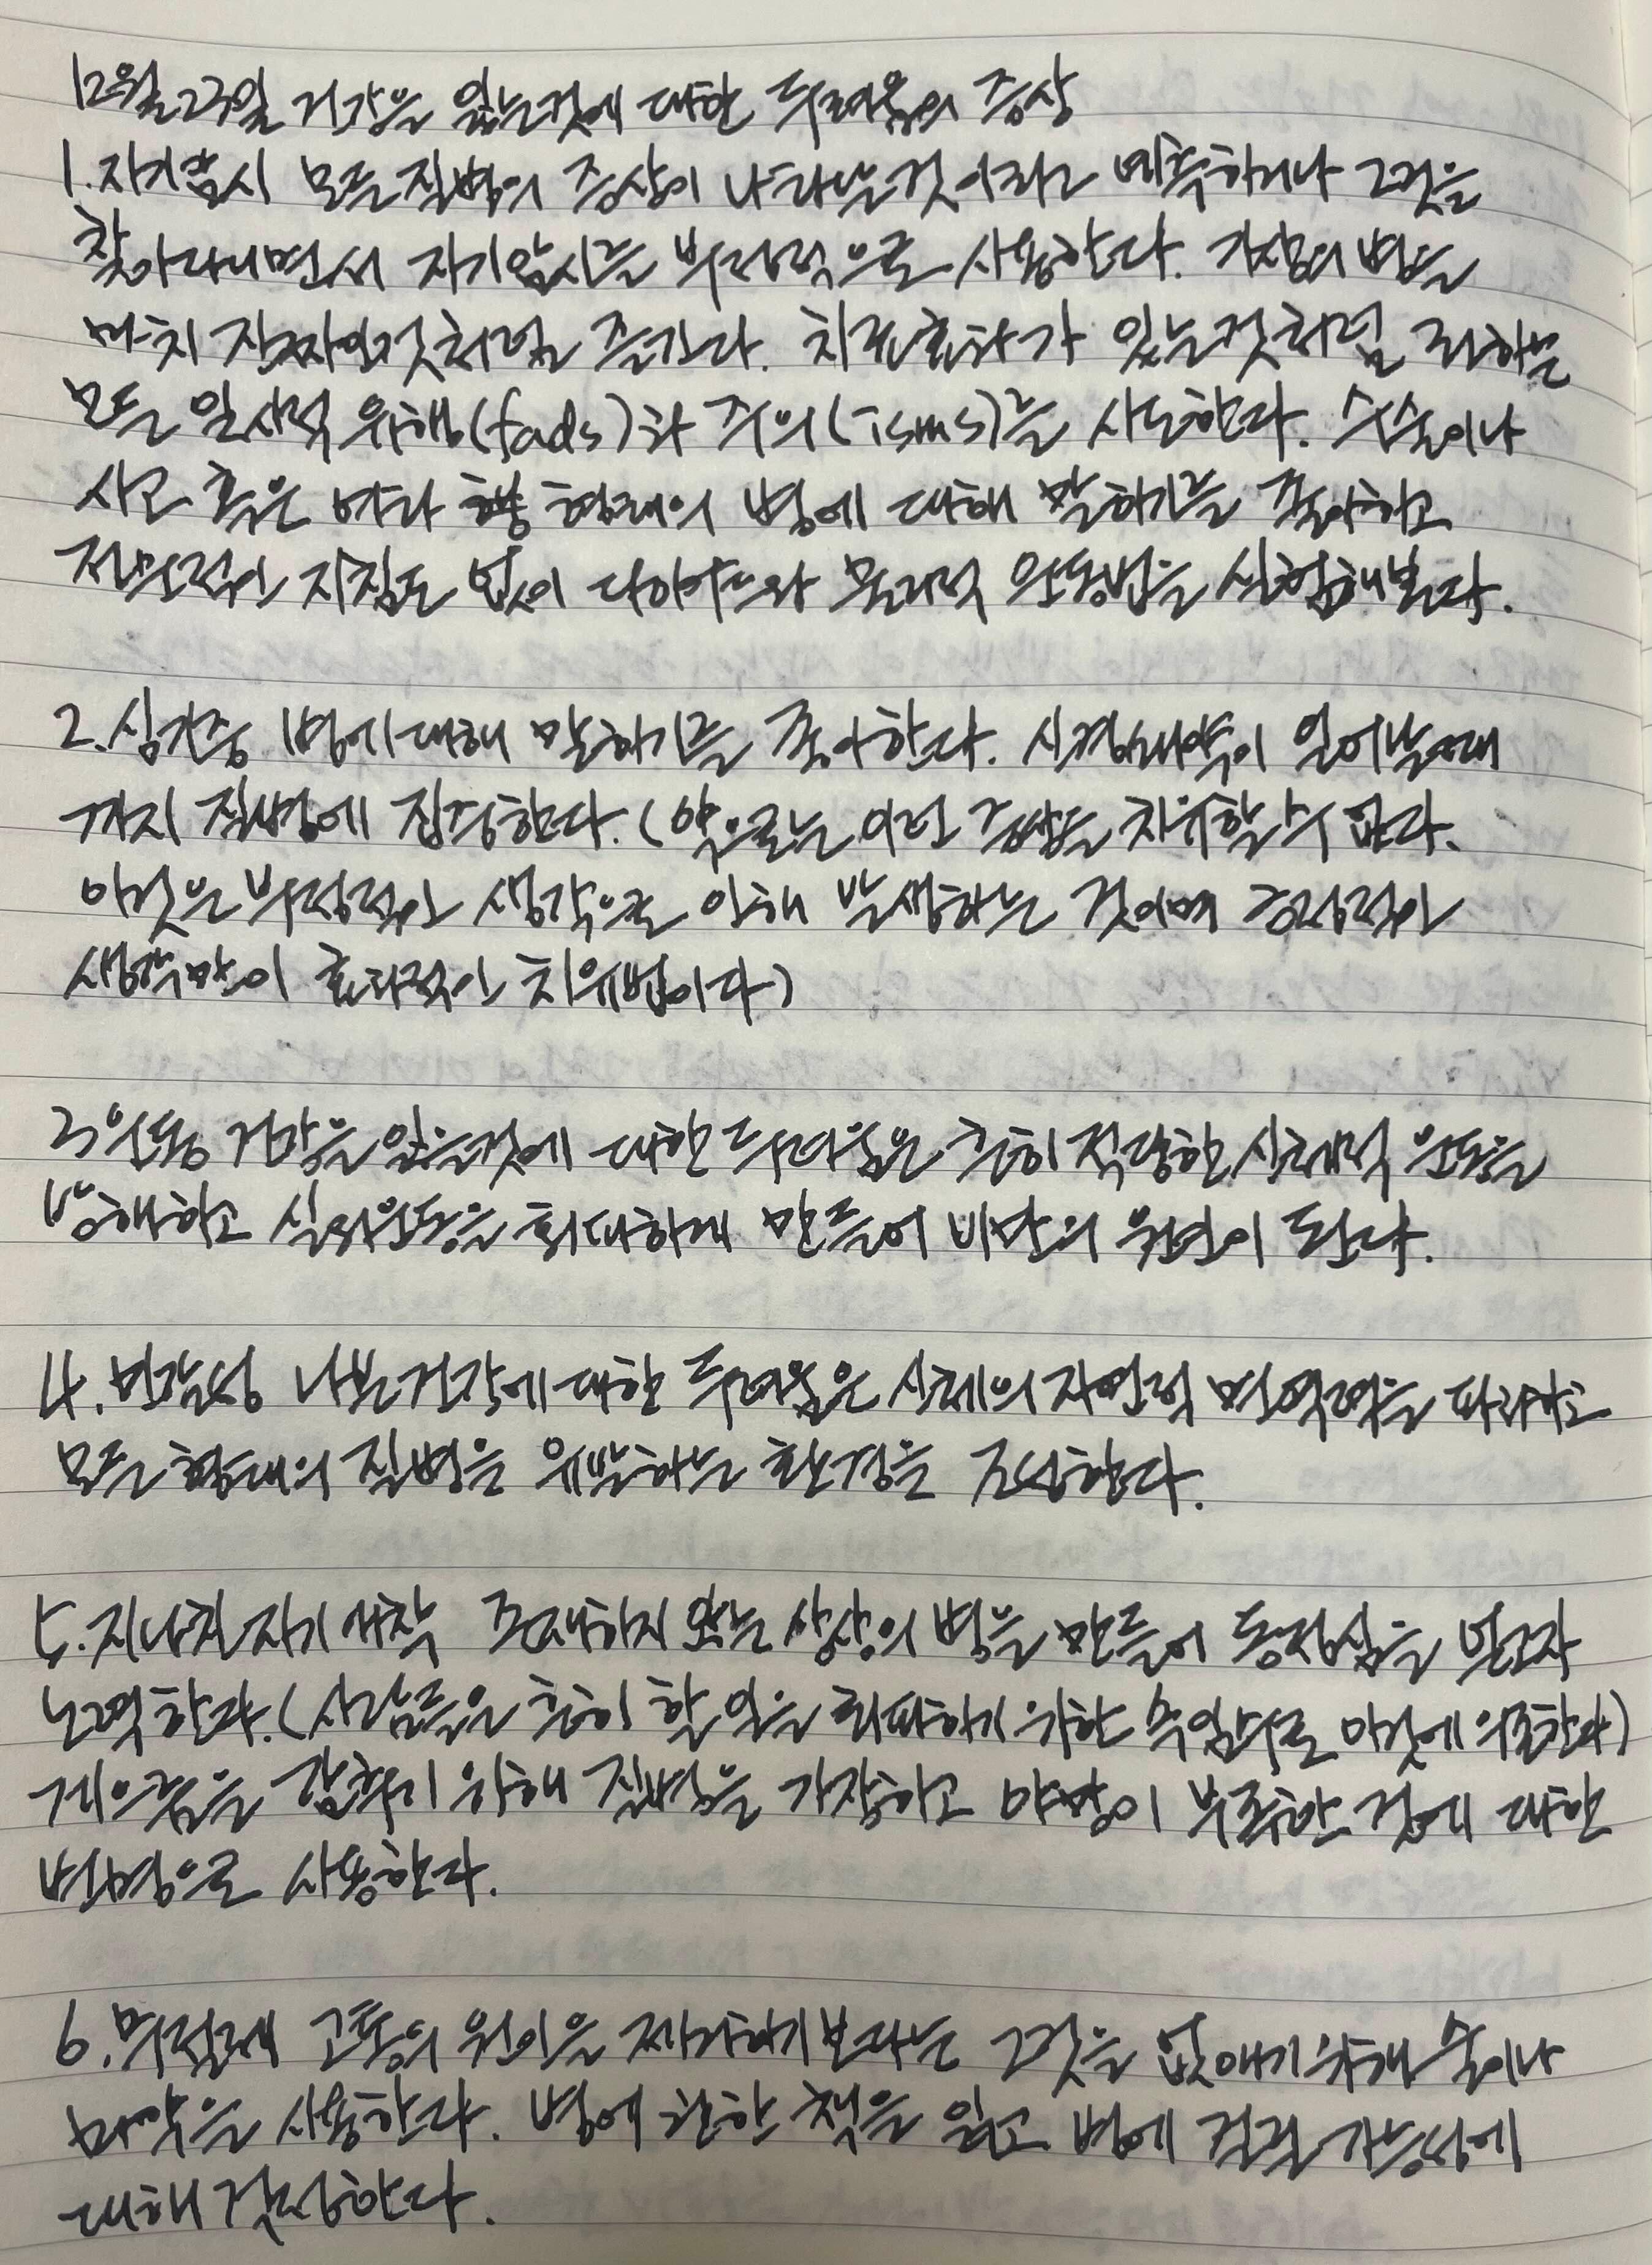 12월23일 건강을 잃는것에 대한 두려움의 증상
1. 자기암시 모든 질병의 증상이 나타날것이라 예측하거나 그것을
찾아다니면서 자기암시를 부정적으로 사용한다. 가상의 병을
마치 진짜인것처럼 즐긴다. 치료효과가 있는것처럼 권하는
모든 일시적 유행(fads)과 주의(isms)를 시도한다. 수술이나
사고 혹은 여타 형태의 병에 대해 말하기를 좋아하고
전문적인 지침도 없이 다이어트와 물리적 운동법을 실험해본다.
2. 심기증 병에대해 말하기를 좋아한다. 신경쇠약이 일어날때
까지 질병에 집중한다. (약으로는 이런 증상을 치유할 수 없다.
이것은 부정적인 생각으로 인해 발생하는 것이며 긍정적인
생각만이 효과적인 치유법이다)
3 운동 건강을 잃을것에 대한 두려움은 흔히 적당한 신체적 운동을
방해하고 실외운동을 회피하게 만들어 비만의 원인이 된다.
4. 민감성 나쁜건강에대한 두려움은 신체의 자연적 면역력을 파괴하고
모든 형태의 질병을 유발하는 환경을 조성한다.
5. 지나친 자기 애착 존재하지 않는 상상의 병을 만들어 동정심을 받고자
노력한다. (사람들은 흔히 할 일을 회피하기 위한 속임수로 이것에 의존한다)
게으름을 감추기 위해 질병을 가장하고 야망이 부족한 것에 대한
변명으로 사용한다.
6. 무절제 고통의 원인을 제거하기보다는 그것을 없애기위해 술이나
마약을 사용한다. 병에 관한 책을 읽고 병에 걸릴 가능성에
대해 걱정한다.